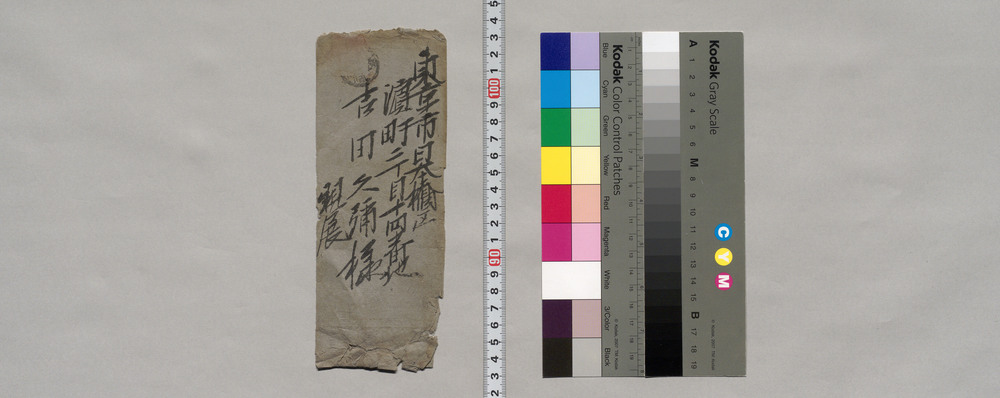 東京市日本橋区
濱町二丁目十四番地
吉田久彌様
親展
Kodak Color Control Patches
Blue
Cyan
Green
Yellow
Red
Magenta
White
3/Color
Black
Kodak Gray Scale
A 1 2 3 4 5 6 M 8 9 10 11 12 13 14 15 B 17 18 19
C Y M
5 4 3 2 1 100 9 8 7 6 5 4 3 2 1 90 9 8 7 6 5 4 3 2